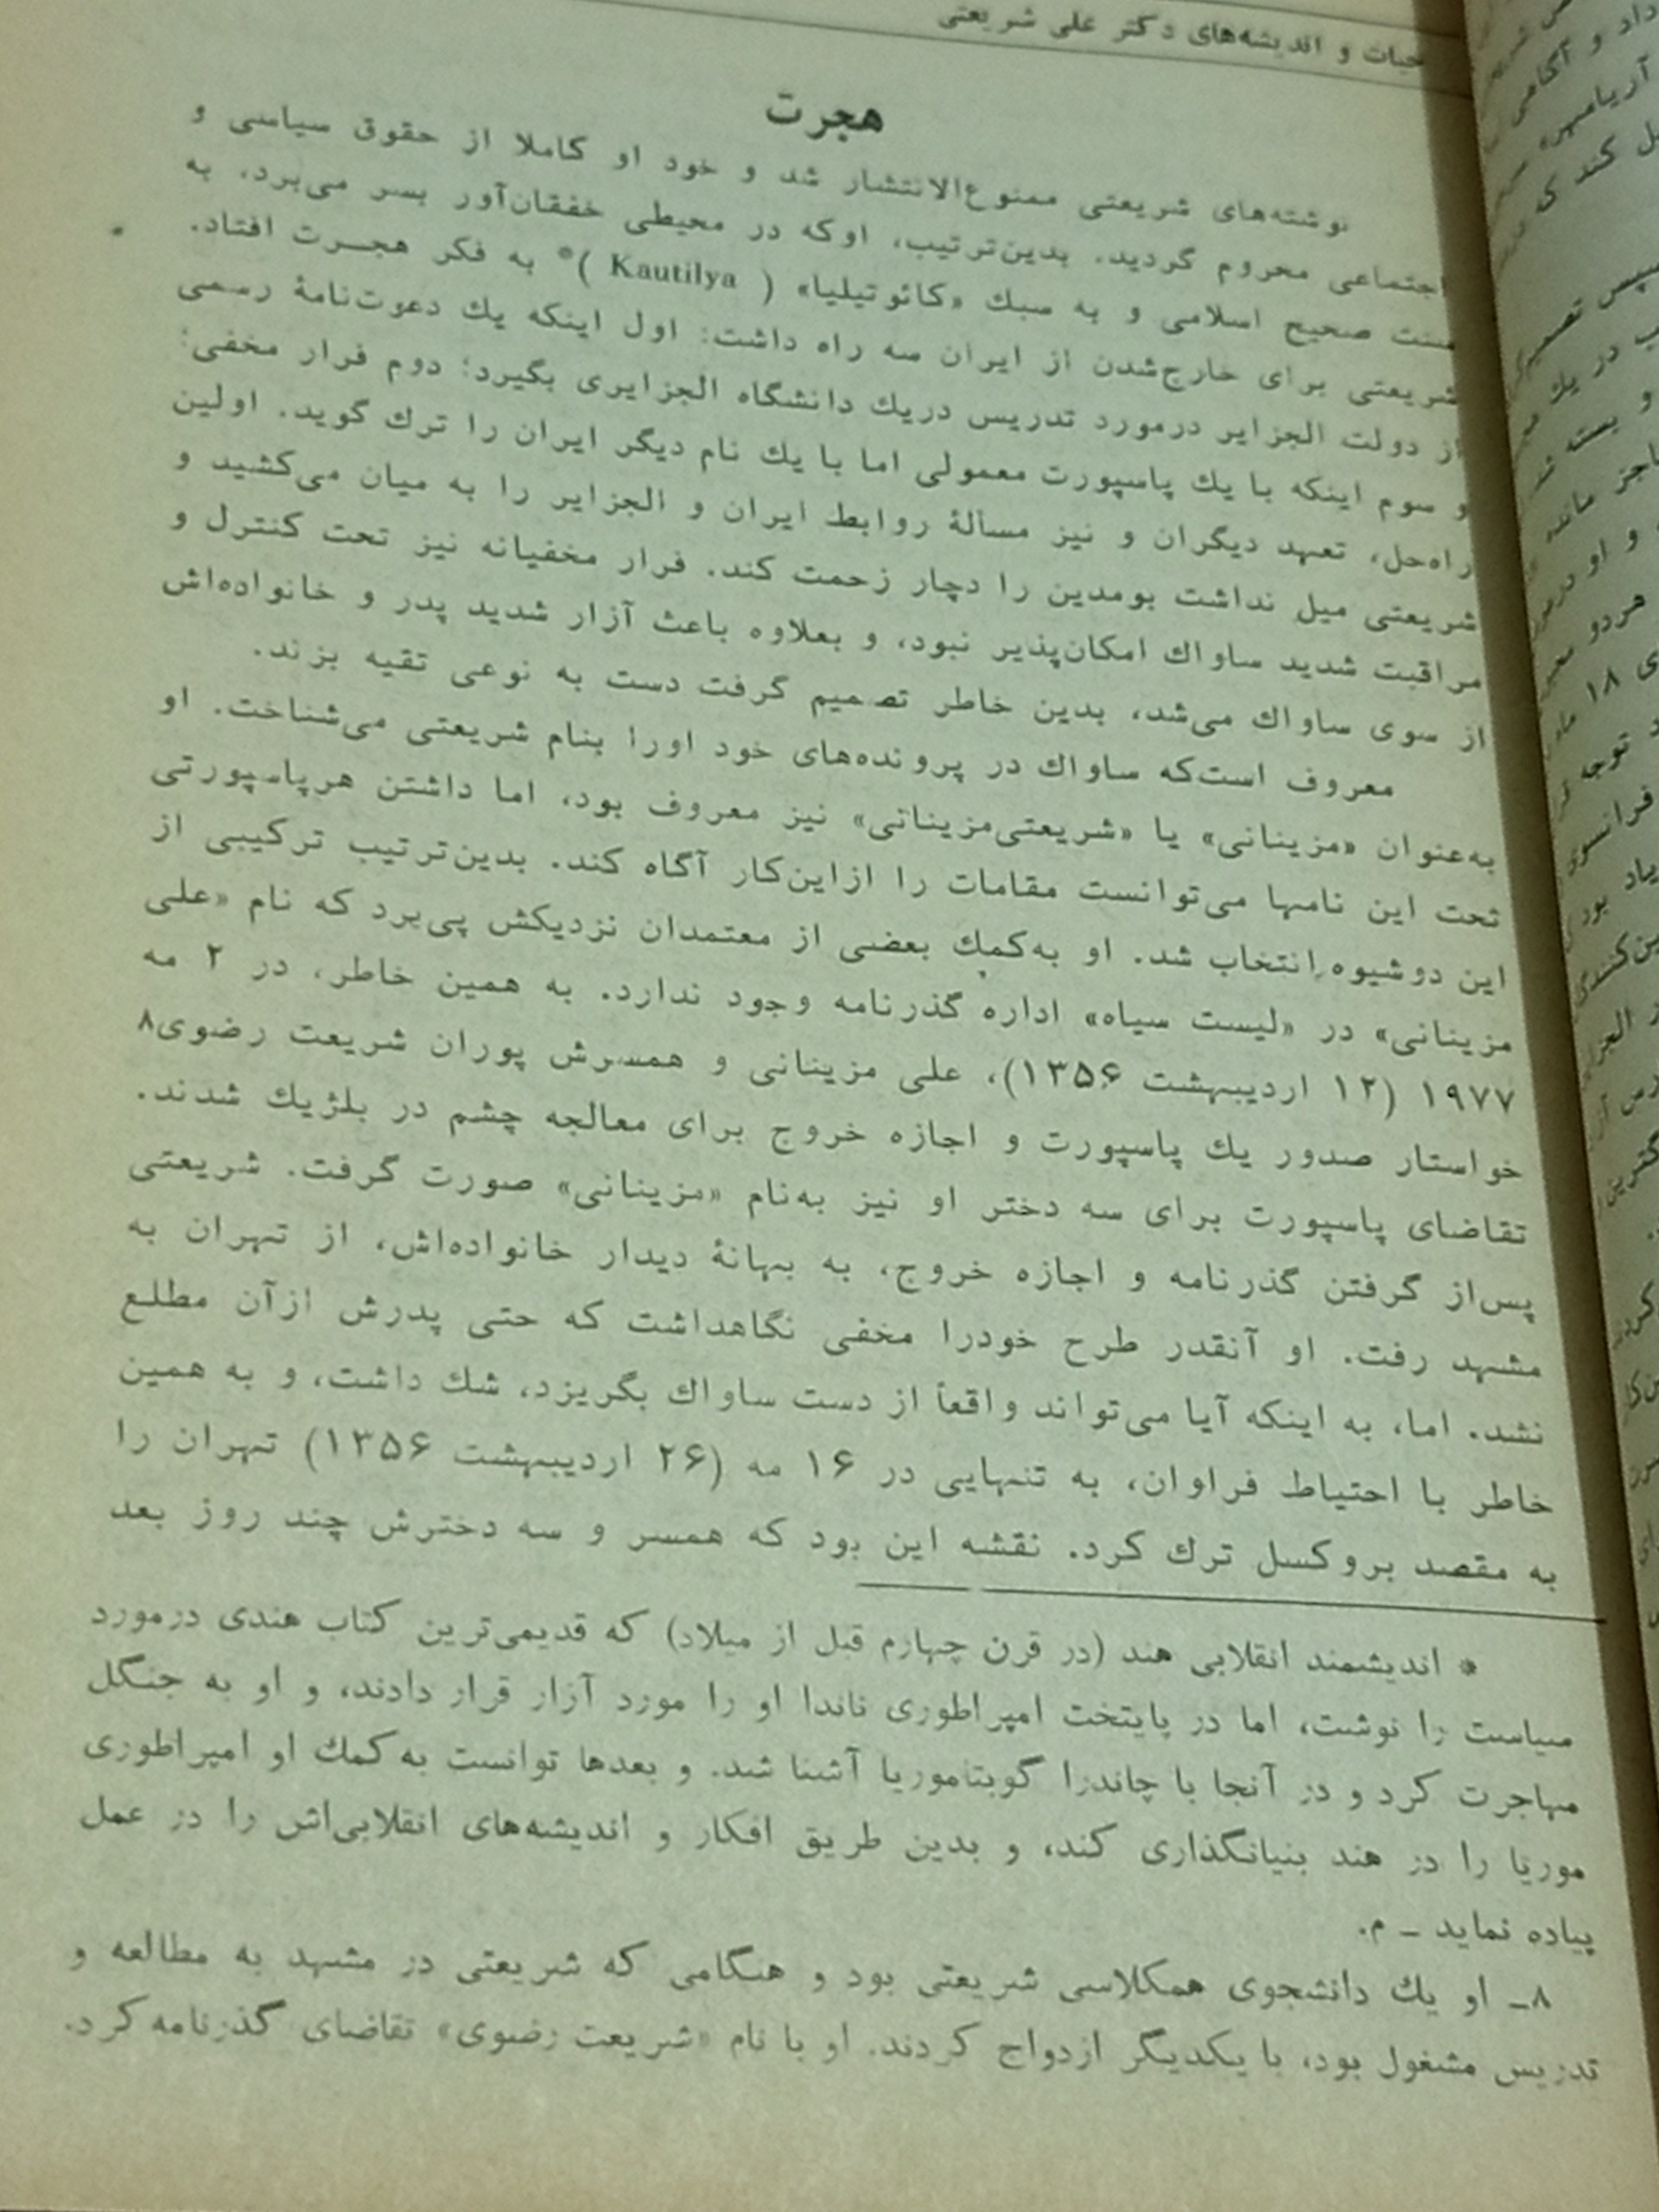 حیات و اندیشه‌های دکتر علی شریعتی
هجرت
نوشته‌های شریعتی ممنوع‌الانتشار شد و خود او کاملا از حقوق سیاسی و
اجتماعی محروم گردید. بدین‌ترتیب، اوکه در محیطی خفقان‌آور بسر می‌برد، به
سنت صحیح اسلامی و به سبك «کائوتیلیا» ( Kautilya )* به فکر هجرت افتاد.
شریعتی برای خارج‌شدن از ایران سه راه داشت: اول اینکه یك دعوت‌نامهٔ رسمی
از دولت الجزایر درمورد تدریس دریك دانشگاه الجزایری بگیرد؛ دوم فرار مخفی؛
و سوم اینکه با یك پاسپورت معمولی اما با یك نام دیگر ایران را ترك گوید. اولین
راه‌حل، تعهد دیگران و نیز مسألهٔ روابط ایران و الجزایر را به میان می‌کشید و
شریعتی میل نداشت بومدین را دچار زحمت کند. فرار مخفیانه نیز تحت کنترل و
مراقبت شدید ساواك امکان‌پذیر نبود، و بعلاوه باعث آزار شدید پدر و خانواده‌اش
از سوی ساواك می‌شد، بدین خاطر تصمیم گرفت دست به نوعی تقیه بزند.
معروف است‌که ساواك در پرونده‌های خود اورا بنام شریعتی می‌شناخت. او
به‌عنوان «مزینانی» یا «شریعتی‌مزینانی» نیز معروف بود، اما داشتن هرپاسپورتی
تحت این نامها می‌توانست مقامات را ازاین‌کار آگاه کند. بدین‌ترتیب ترکیبی از
این دوشیوه انتخاب شد. او به‌کمك بعضی از معتمدان نزدیکش پی‌برد که نام «علی
مزینانی» در «لیست سیاه» اداره گذرنامه وجود ندارد. به همین خاطر، در ۲ مه
۱۹۷۷ (۱۲ اردیبهشت ۱۳۵۶)، علی مزینانی و همسرش پوران شریعت رضوی۸
خواستار صدور یك پاسپورت و اجازه خروج برای معالجه چشم در بلژیك شدند.
تقاضای پاسپورت برای سه دختر او نیز به‌نام «مزینانی» صورت گرفت. شریعتی
پس‌از گرفتن گذرنامه و اجازه خروج، به بهانهٔ دیدار خانواده‌اش، از تهران به
مشهد رفت. او آنقدر طرح خودرا مخفی نگاهداشت که حتی پدرش ازآن مطلع
نشد. اما، به اینکه آیا می‌تواند واقعاً از دست ساواك بگریزد، شك داشت، و به همین
خاطر با احتیاط فراوان، به تنهایی در ۱۶ مه (۲۶ اردیبهشت ۱۳۵۶) تهران را
به مقصد بروکسل ترك کرد. نقشه این بود که همسر و سه دخترش چند روز بعد
* اندیشمند انقلابی هند (در قرن چهارم قبل از میلاد) که قدیمی‌ترین کتاب هندی درمورد
سیاست را نوشت، اما در پایتخت امپراطوری ناندا او را مورد آزار قرار دادند، و او به جنگل
مهاجرت کرد و در آنجا با چاندرا گوبتاموریا آشنا شد. و بعدها توانست به‌کمك او امپراطوری
موریا را در هند بنیانگذاری کند، و بدین طریق افکار و اندیشه‌های انقلابی‌اش را در عمل
پیاده نماید ـ م.
۸ـ او یك دانشجوی همکلاسی شریعتی بود و هنگامی که شریعتی در مشهد به مطالعه و
تدریس مشغول بود، با یکدیگر ازدواج کردند. او با نام «شریعت رضوی» تقاضای گذرنامه کرد.